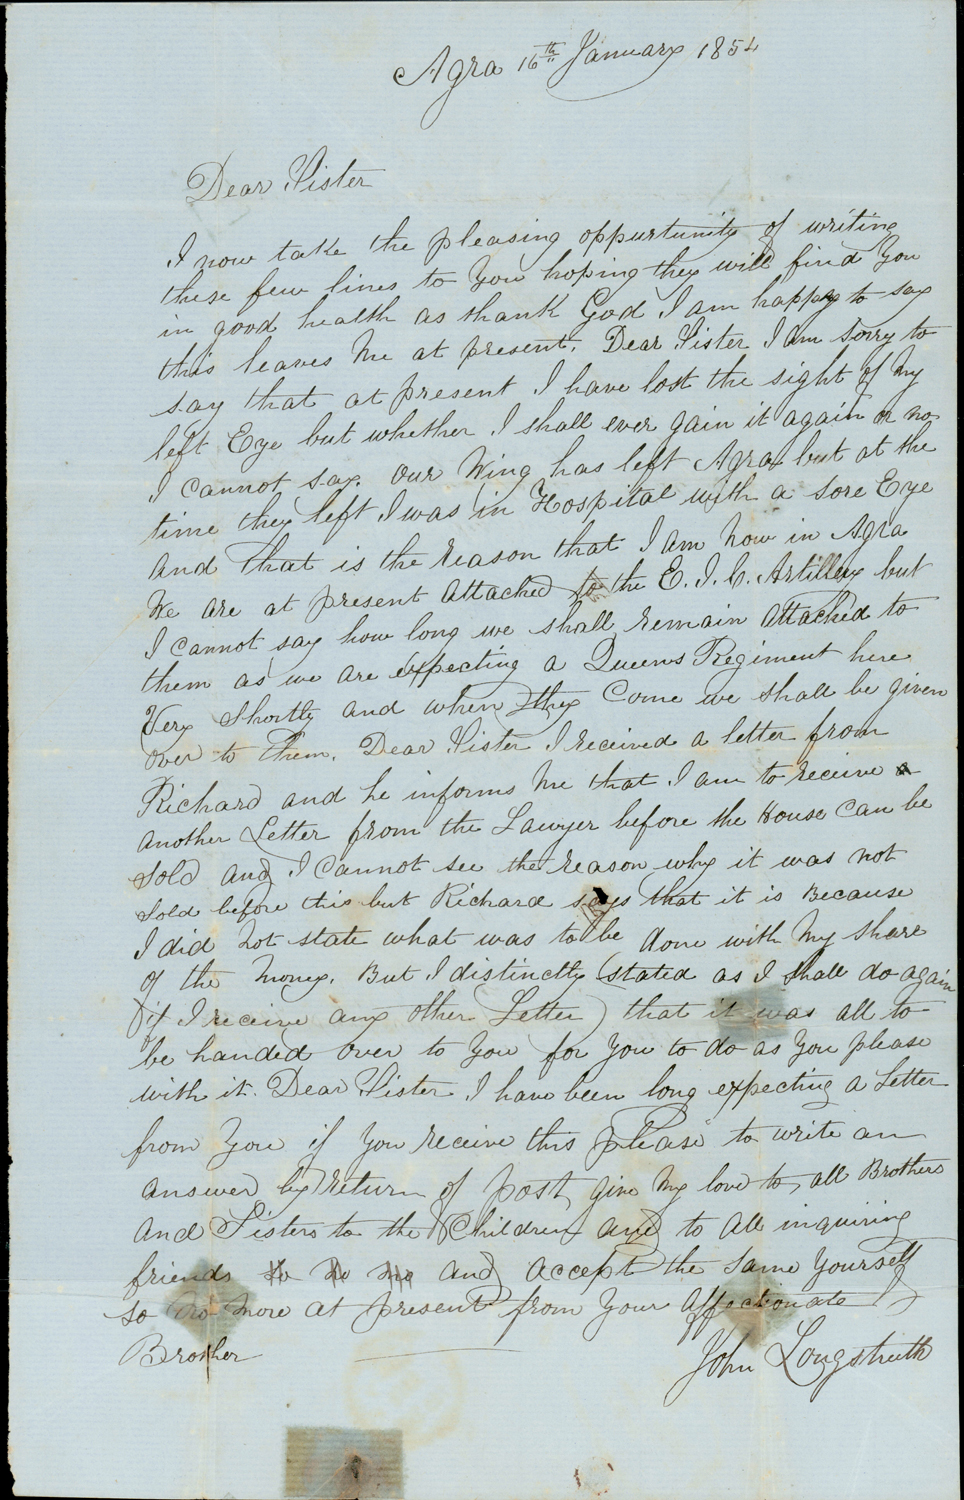 Agra 16th January 1854
Dear Sister
I now take the pleasing oppurtunity of writing
these few lines to You hoping they will find You
in good health as thank God I am happy to say
this leaves Me at present. Dear Sister I am Sorry to
say that at present I have lost the sight of My
left Eye but whether I shall ever gain it again or no
I cannot say. our Wing has left Agra but at the
time they left I was in Hospital with a sore Eye
and that is the reason that I am now in Agra
We are at present attached to the E. I. C. Artillery but
I cannot say how long we shall remain attached to
them as we are expecting a Queens Regiment here
Very Shortly and when they Come we shall be given
over to them. Dear Sister I received a letter from
Richard and he informs Me that I am to receive a
another Letter from the Lawyer before the House can be
Sold and I cannot see the reason why it was not
Sold before this but Richard says that it is Because
I did not state what was to be done with My share
of the money. But I distinctly stated as I shall do again
(if I receive any other Letter) that it was all to
be handed over to You for You to do as You please
with it. Dear Sister I have been long expecting a Letter
from You if You receive this please to write an
answer by return of post, give My love to all Brothers
and Sisters to the Children and to all inquiring
friends to No me and accept the same Yourself
so No more at present from Your Affectionate
Brother
John Longstruth